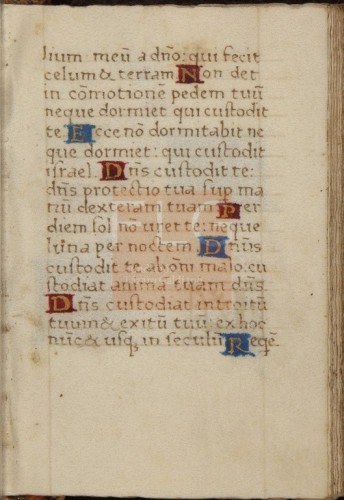 lium meū a dño: qui fecit
celum & terram Non det
in cōmotionē pedem tuū
neque dormiet qui custodit
te. Ecce nō dormitabit ne
que dormiet: qui custodit
israel. Dñs custodit te:
dñs protectio tua sup ma
nū dexteram tuam Per
diem sol nō uret te: neque
luna per noctem. Dñs
custodit te ab oni malo: cu
stodiat animā tuam dñs.
Dñs custodiat introitū
tuum & exitū tuū: ex hoc
nūc & usq; in seculū Reqē.